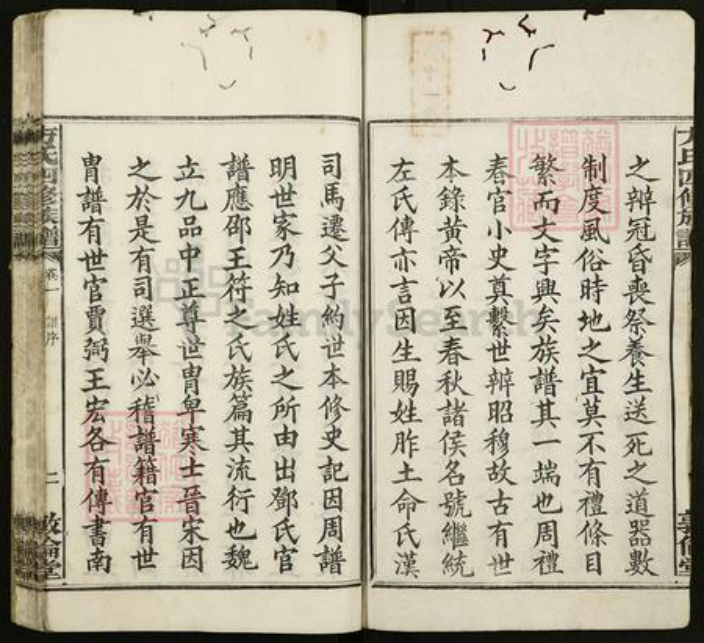 之辨冠昏喪祭養生送死之道器數
制度風俗時地之宜莫不有禮條目
繁而文字興矣族譜其一端也周禮
春官小史奠繫世辨昭穆故古有世
本錄黃帝以至春秋諸侯名號繼統
左氏傳亦言因生賜姓胙土命氏漢
司馬遷父子約世本修史記因周譜
明世家乃知姓氏之所由出鄧氏官
譜應邵王符之氏族篇其流行也魏
立九品中正尊世胄卑寒士晉宋因
之於是有司選舉必稽譜籍官有世
胄譜有世官賈弼王宏各有傳書南
方氏四修族譜
卷一
譜序
二
敦倫堂
FamilySearch